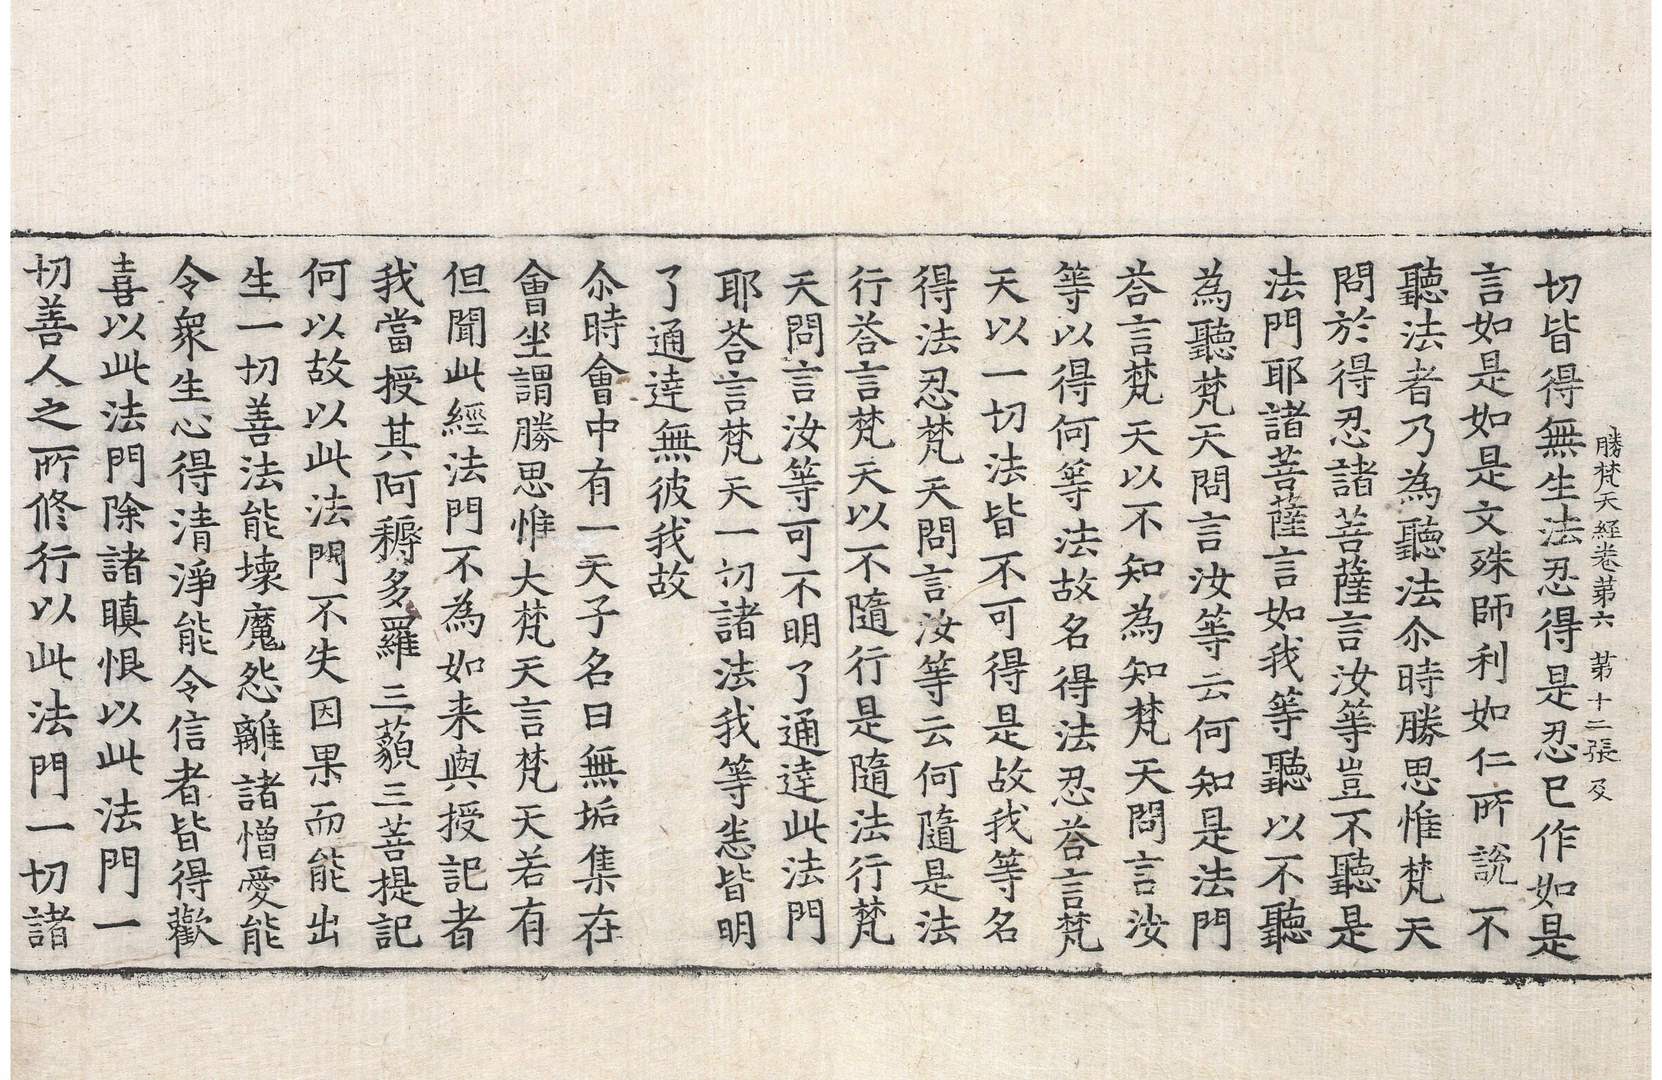 勝梵天経卷苐六 苐十二張 叐
切皆得無生法忍得是忍已作如是
言如是如是文殊師利如仁所說不
聽法者乃為聽法尒時勝思惟梵天
問於得忍諸菩薩言汝等豈不聽是
法門耶諸菩薩言如我等聽以不聽
為聽梵天問言汝等云何知是法門
荅言梵天以不知為知梵天問言汝
等以得何等法故名得法忍荅言梵
天以一切法皆不可得是故我等名
得法忍梵天問言汝等云何隨是法
行荅言梵天以不隨行是隨法行梵
天問言汝等可不明了通逹此法門
耶荅言梵天一切諸法我等悉皆明
了通逹無彼我故
尒時會中有一天子名曰無垢集在
會坐謂勝思惟大梵天言梵天若有
但聞此經法門不為如来與授記者
我當授其阿耨多羅三藐三菩提記
何以故以此法門不失因果而能出
生一切善法能壞魔怨離諸憎愛能
令衆生心得清淨能令信者皆得歡
喜以此法門除諸瞋恨以此法門一
切善人之所修行以此法門一切諸